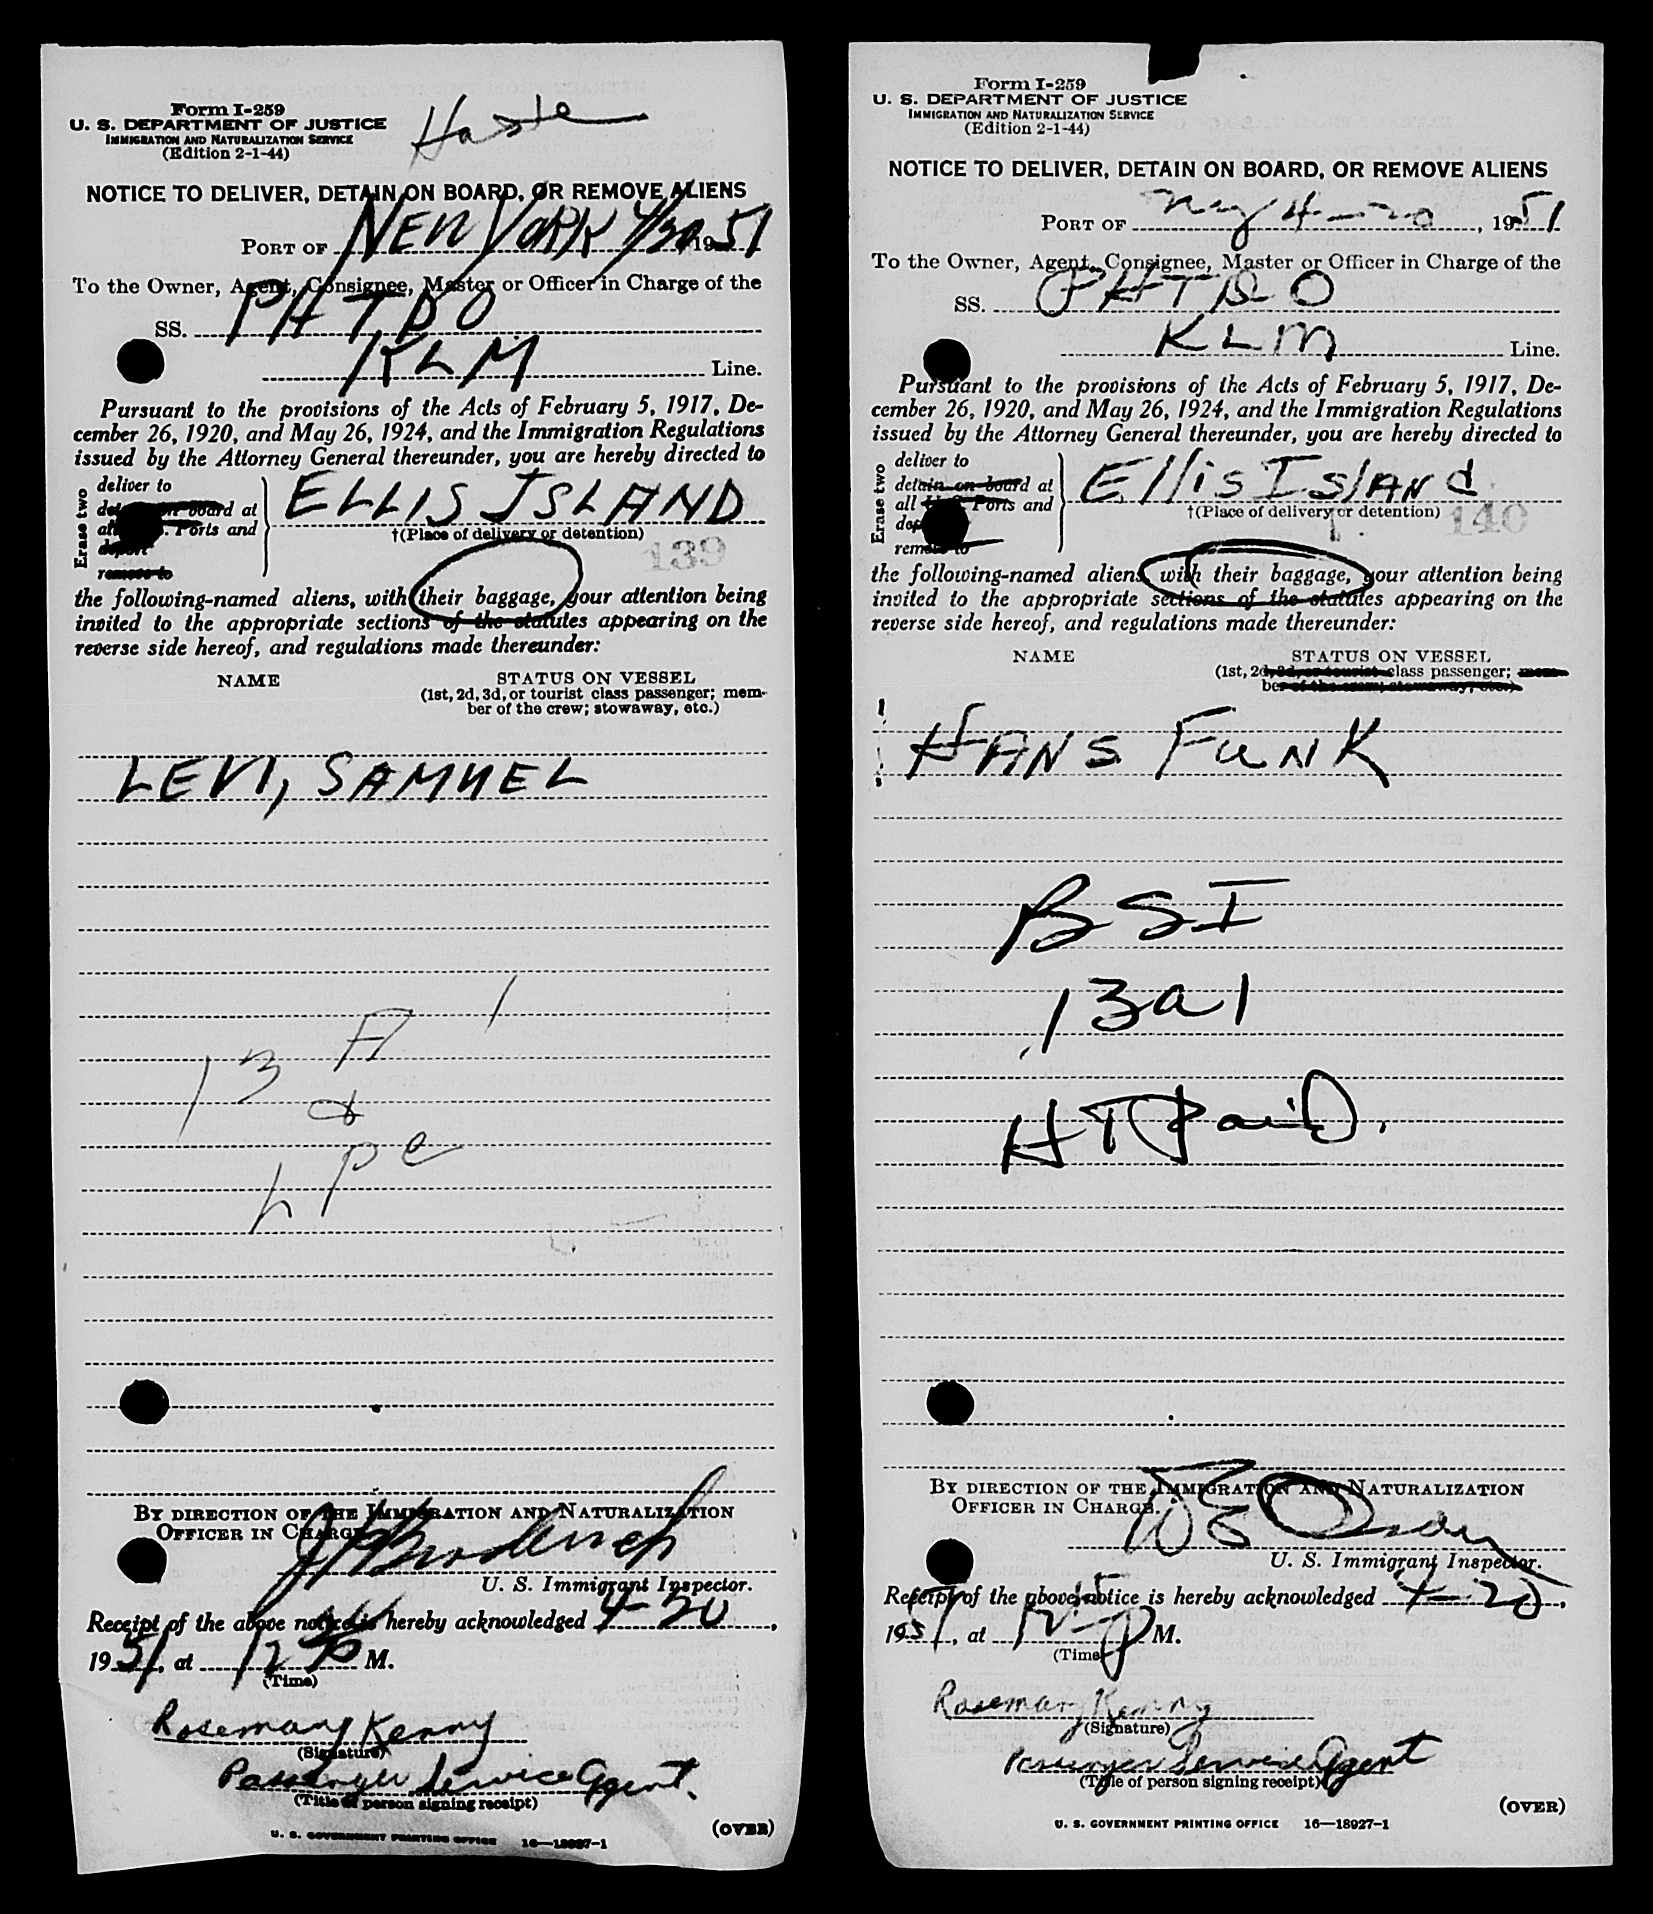 Form I-259
U. S. DEPARTMENT OF JUSTICE
IMMIGRATION AND NATURALIZATION SERVICE
(Edition 2-1-44)
NOTICE TO DELIVER, DETAIN ON BOARD, OR REMOVE ALIENS
PORT OF NEW YORK 4/20 1951
To the Owner, Agent, Consignee, Master or Officer in Charge of the
SS. PHTDO
KLM Line.
Pursuant to the provisions of the Acts of February 5, 1917, De-
cember 26, 1920, and May 26, 1924, and the Immigration Regulations
issued by the Attorney General thereunder, you are hereby directed to
Erase two
deliver to
detain on board at
all U. S. Ports and
deport
remove to
ELLIS ISLAND
†(Place of delivery or detention)
139
the following-named aliens, with their baggage, your attention being
invited to the appropriate sections of the statutes appearing on the
reverse side hereof, and regulations made thereunder:
NAME STATUS ON VESSEL
(1st, 2d, 3d, or tourist class passenger; mem-
ber of the crew; stowaway, etc.)
LEVI, SAMUEL
13 A 1
BY DIRECTION OF THE IMMIGRATION AND NATURALIZATION
OFFICER IN CHARGE.
U. S. Immigrant Inspector.
Receipt of the above notice is hereby acknowledged 4-20,
1951, at 12 P M.
(Time)
Rosemary Kenny
(Signature)
Passenger Service Agent.
(Title of person signing receipt)
(OVER)
U. S. GOVERNMENT PRINTING OFFICE 16—18927-1
Form I-259
U. S. DEPARTMENT OF JUSTICE
IMMIGRATION AND NATURALIZATION SERVICE
(Edition 2-1-44)
NOTICE TO DELIVER, DETAIN ON BOARD, OR REMOVE ALIENS
PORT OF NY 4-20, 1951
To the Owner, Agent, Consignee, Master or Officer in Charge of the
SS. PHTDO
KLM Line.
Pursuant to the provisions of the Acts of February 5, 1917, De-
cember 26, 1920, and May 26, 1924, and the Immigration Regulations
issued by the Attorney General thereunder, you are hereby directed to
Erase two
deliver to
detain on board at
all U. S. Ports and
deport
remove to
Ellis Island
†(Place of delivery or detention)
140
the following-named aliens, with their baggage, your attention being
invited to the appropriate sections of the statutes appearing on the
reverse side hereof, and regulations made thereunder:
NAME STATUS ON VESSEL
(1st, 2d, 3d, or tourist class passenger; mem-
ber of the crew; stowaway, etc.)
HANS FUNK
BSI
13a1
HT Paid.
BY DIRECTION OF THE IMMIGRATION AND NATURALIZATION
OFFICER IN CHARGE.
U. S. Immigrant Inspector.
Receipt of the above notice is hereby acknowledged 4-20,
1951, at 12 P M.
(Time)
Rosemary Kenny
(Signature)
Passenger Service Agent
(Title of person signing receipt)
(OVER)
U. S. GOVERNMENT PRINTING OFFICE 16—18927-1